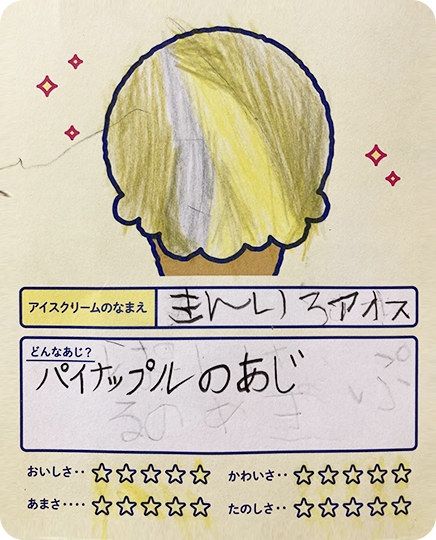 アイスクリームのなまえ きんいろアイス
どんなあじ?
パイナップルのあじ
おいしさ‥ ☆☆☆☆☆ かわいさ‥ ☆☆☆☆☆
あまさ‥‥ ☆☆☆☆☆ たのしさ‥ ☆☆☆☆☆